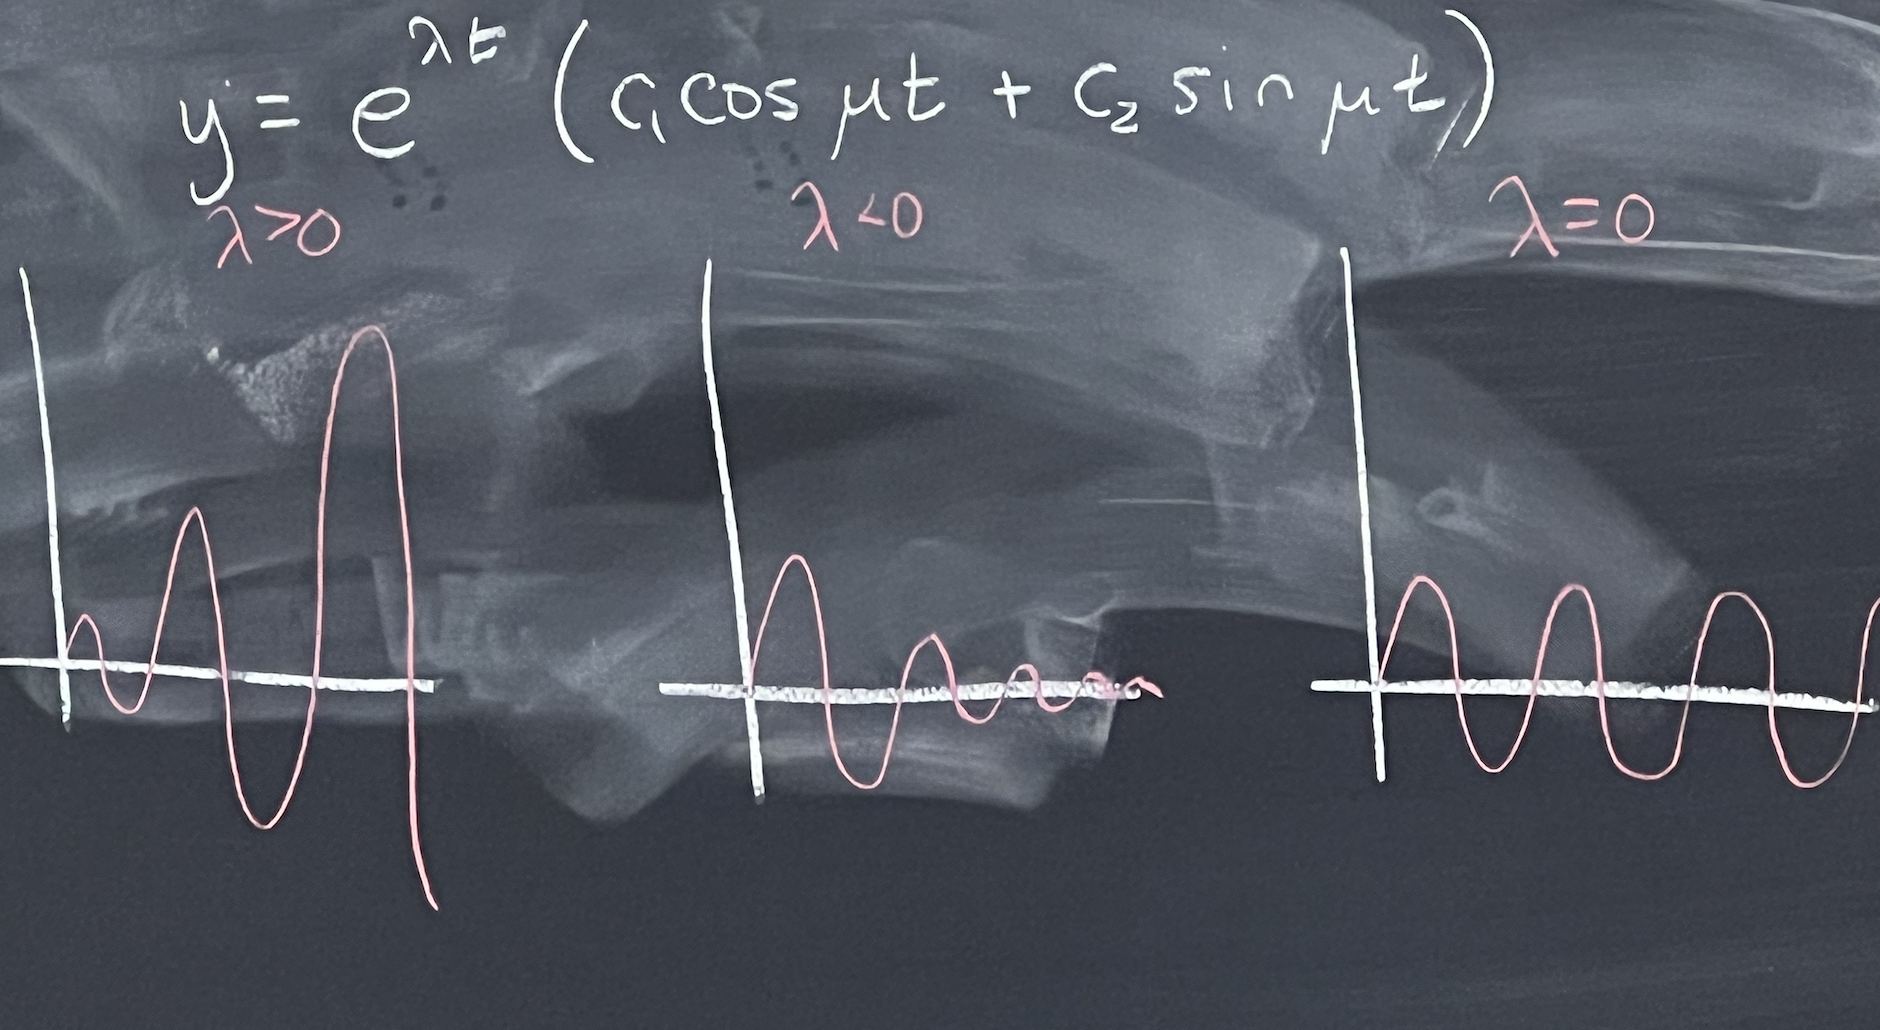 y = e^λt (c₁cos μt + c₂ sin μt)
λ>0 λ<0 λ=0